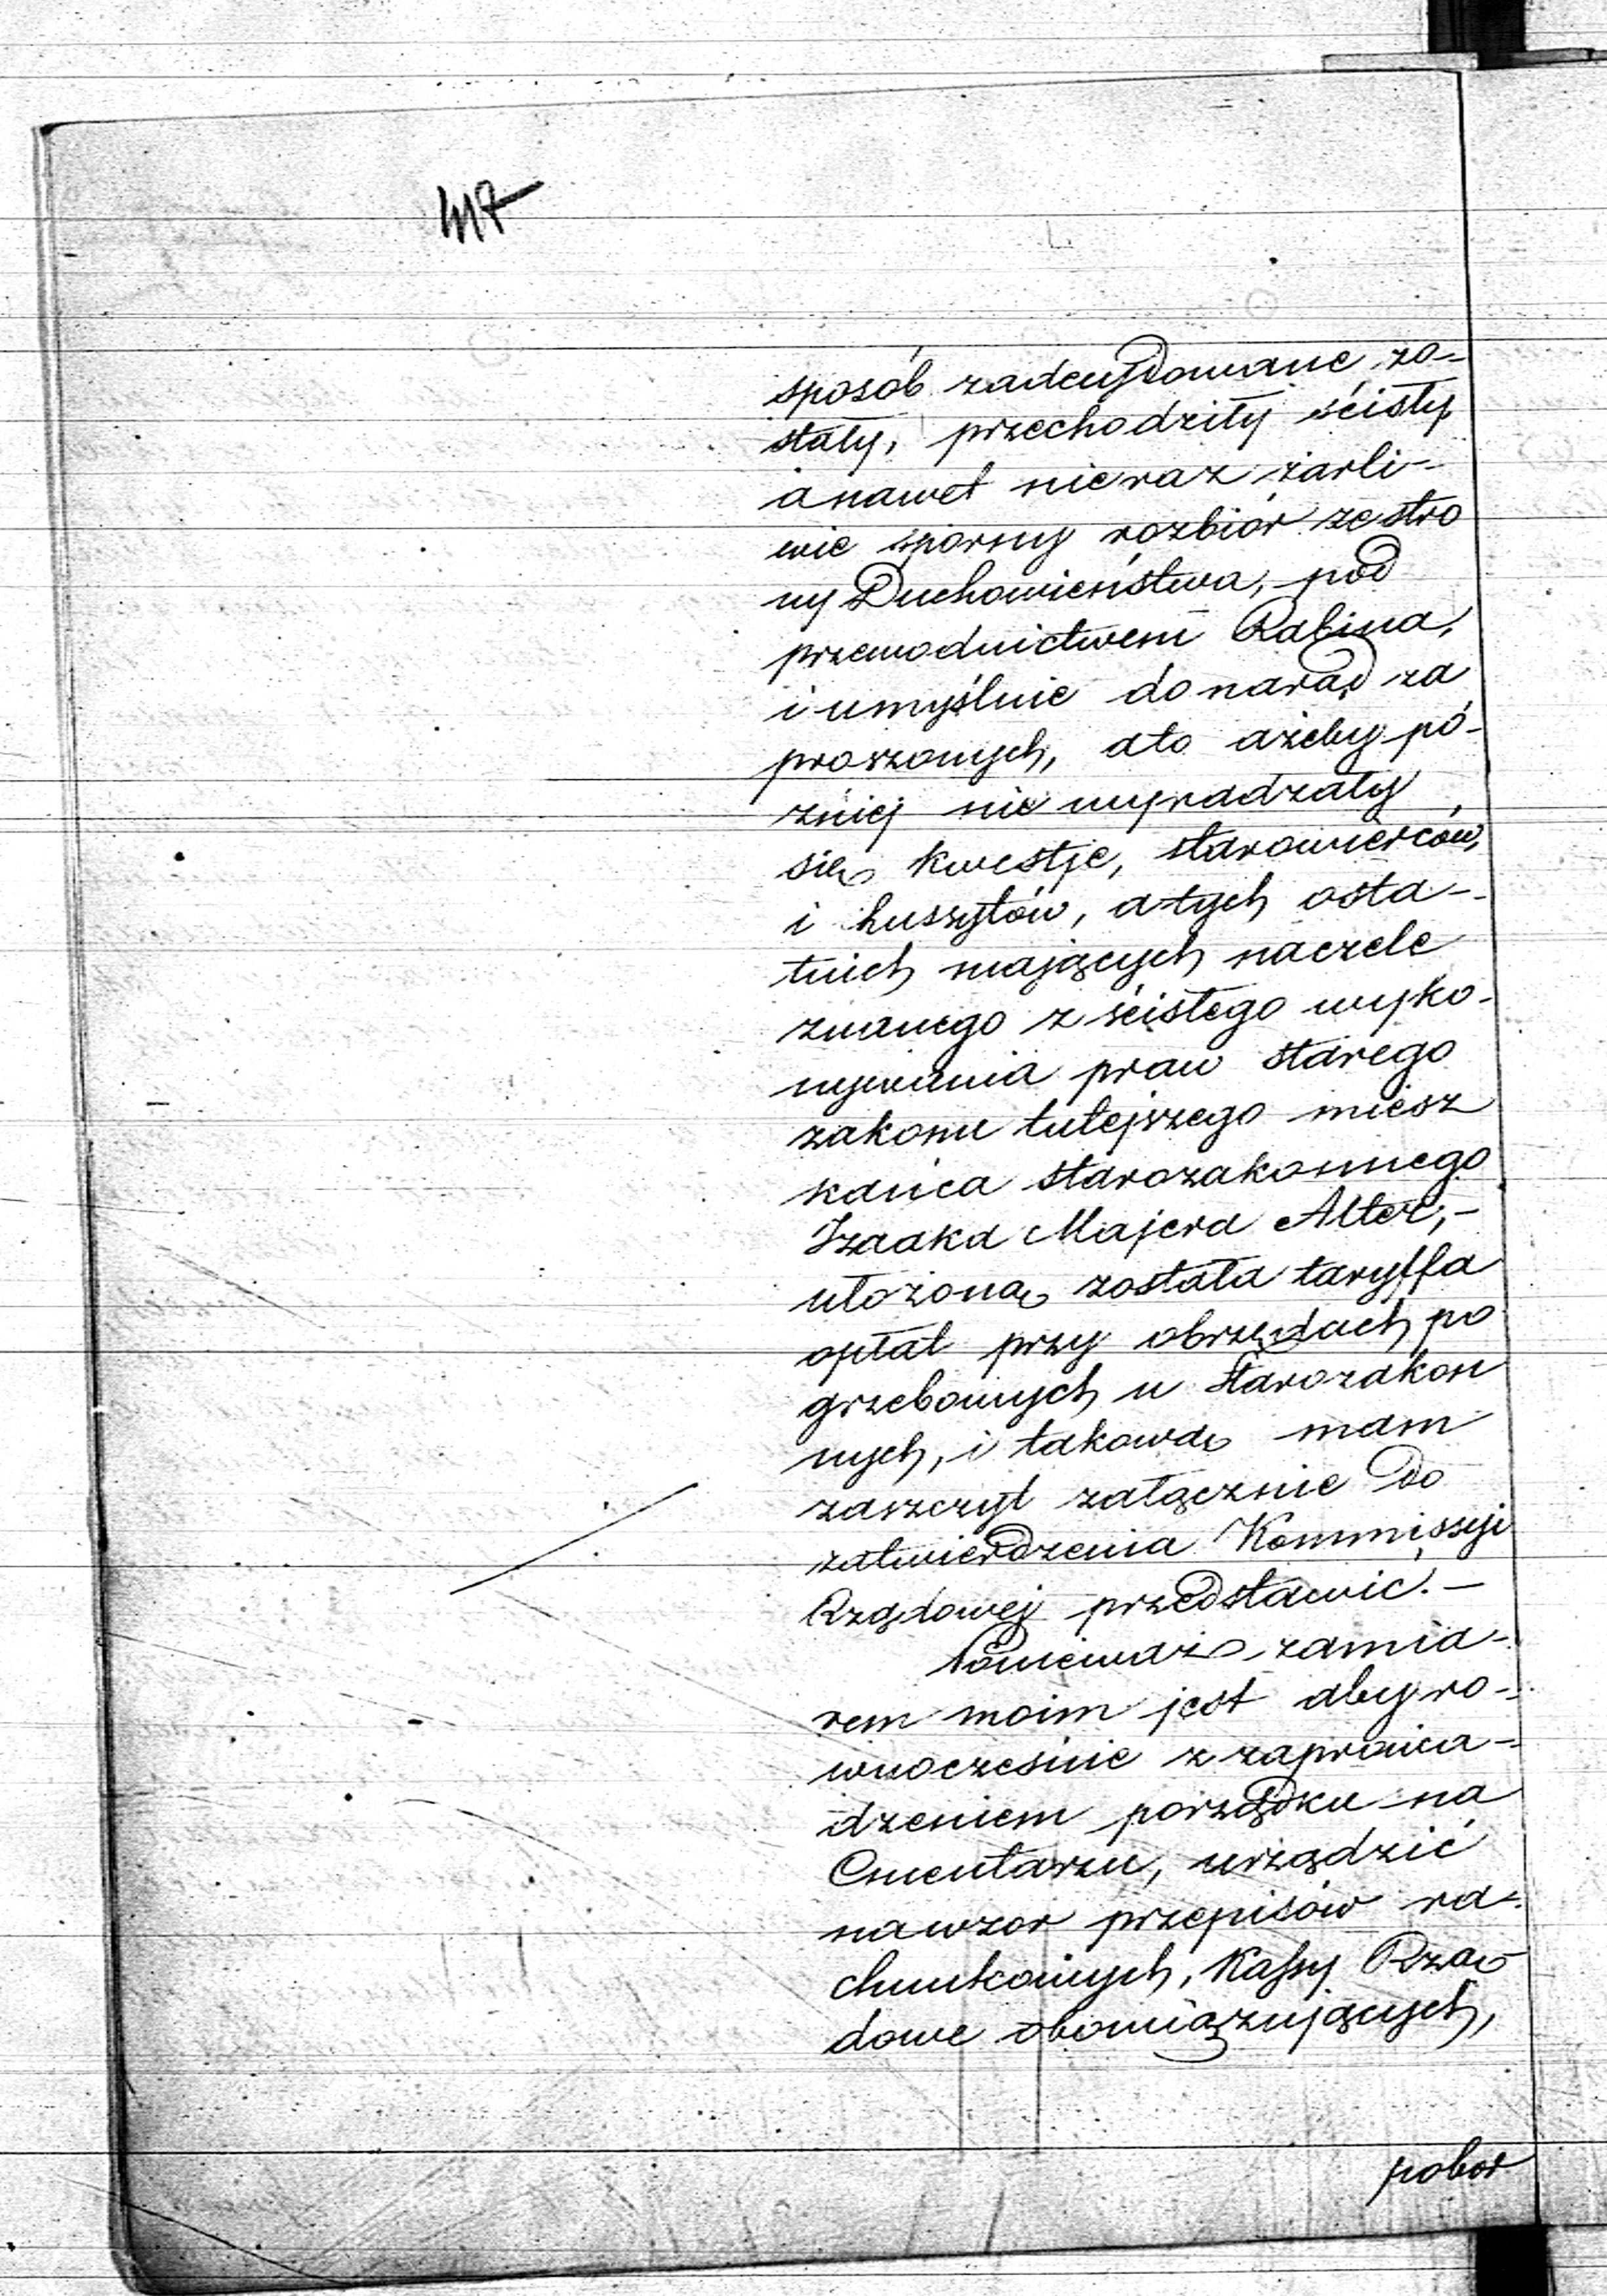 417
sposób zadecydowane zo-
stały, przechodziły ścisły
a nawet nieraz żarli-
wie sporny rozbiór ze stro
ny Duchowieństwa, pod
przewodnictwem Rabina,
i umyślnie do narad za
proszonych, a to ażeby pó-
źniej nie wyradzały
się kwestje, starowierców,
i huszytów, a tych osta-
tnich mających na czele
znanego z ścisłego wyko-
nywania praw starego
zakonu tutejszego miesz
kańca starozakonnego
Izaaka Majera Alter,-
ułożoną została taryffa
opłat przy obrzędach po
grzebowych u Starozakon
nych, i takową mam
zaszczyt załącznie do
zatwierdzenia Kommissyi
Rządowej przedstawić.-
Ponieważ zamia-
rem moim jest aby ró-
wnocześnie z zaprowa-
dzeniem porządku na
Cmentarzu, urządzić
na wzór przepisów ra-
chunkowych, Kassy Rzą-
dowe obowiązujących,
pobor